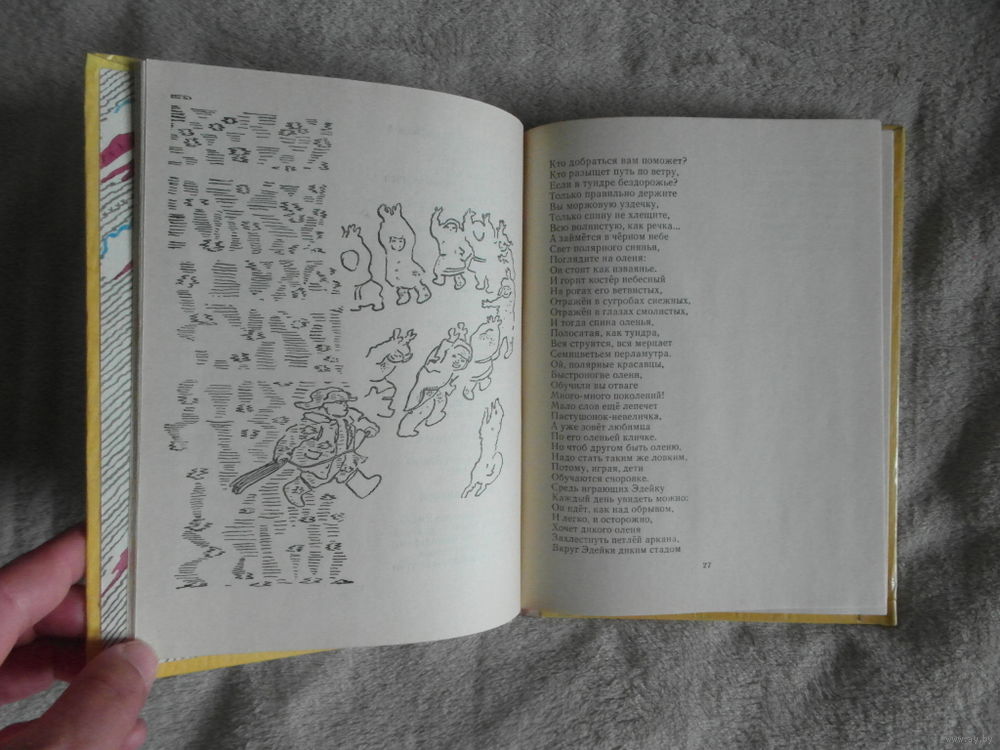 Кто добраться вам поможет?
Кто разыщет путь по ветру,
Если в тундре бездорожье?
Только правильно держите
Вы моржовую уздечку,
Только спину не хлещите,
Всю волнистую, как речка...
А займётся в чёрном небе
Свет полярного сиянья,
Поглядите на оленя:
Он стоит как изваянье.
И горит костёр небесный
На рогах его ветвистых,
Отражён в сугробах снежных,
Отражён в глазах смолистых,
И тогда спина оленья,
Полосатая, как тундра,
Вся струится, вся мерцает
Семицветьем перламутра.
Ой, полярные красавцы,
Быстроногие олени,
Обучили вы отваге
Много-много поколений!
Мало слов ещё лепечет
Пастушонок-невеличка,
А уже зовёт любимца
По его оленьей кличке.
Но чтоб другом быть оленю,
Надо стать таким же ловким,
Потому, играя, дети
Обучаются сноровке.
Средь играющих Эдейку
Каждый день увидеть можно:
Он идёт, как над обрывом,
И легко, и осторожно,
Хочет дикого оленя
Захлестнуть петлёй аркана,
Вкруг Эдейки диким стадом
27
www.ay.by